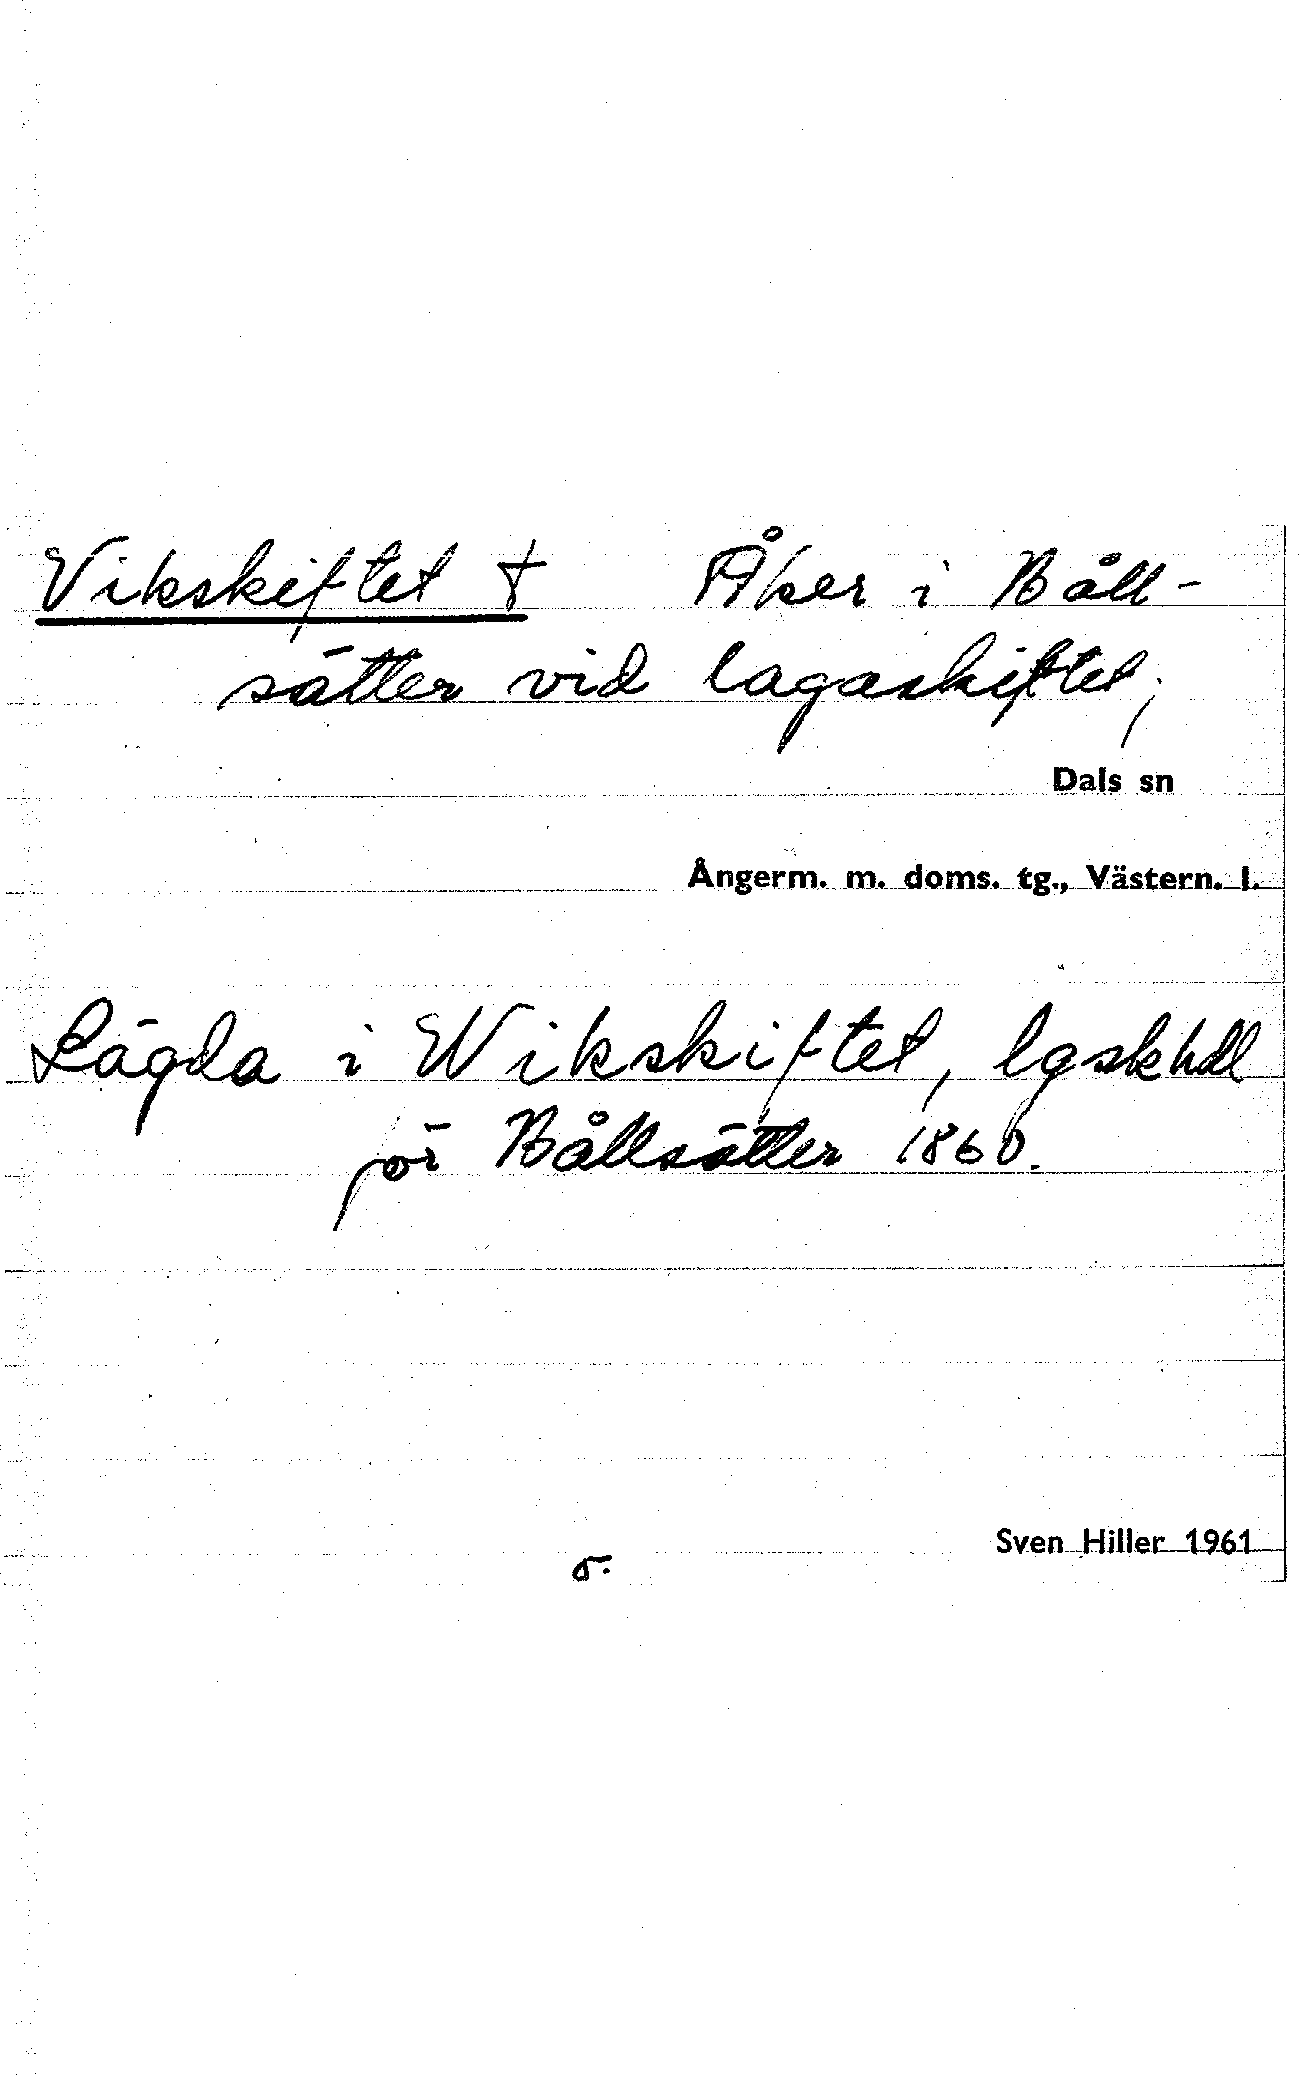 Vikskiftet † Åker i Båll-
sätter vid lagaskiftet,
Dals sn
Ångerm. m. doms. tg., Västern. l.
Lägda i Wikskiftet, lgskhdl
för Bållsätter 1860.
Sven Hiller 1961